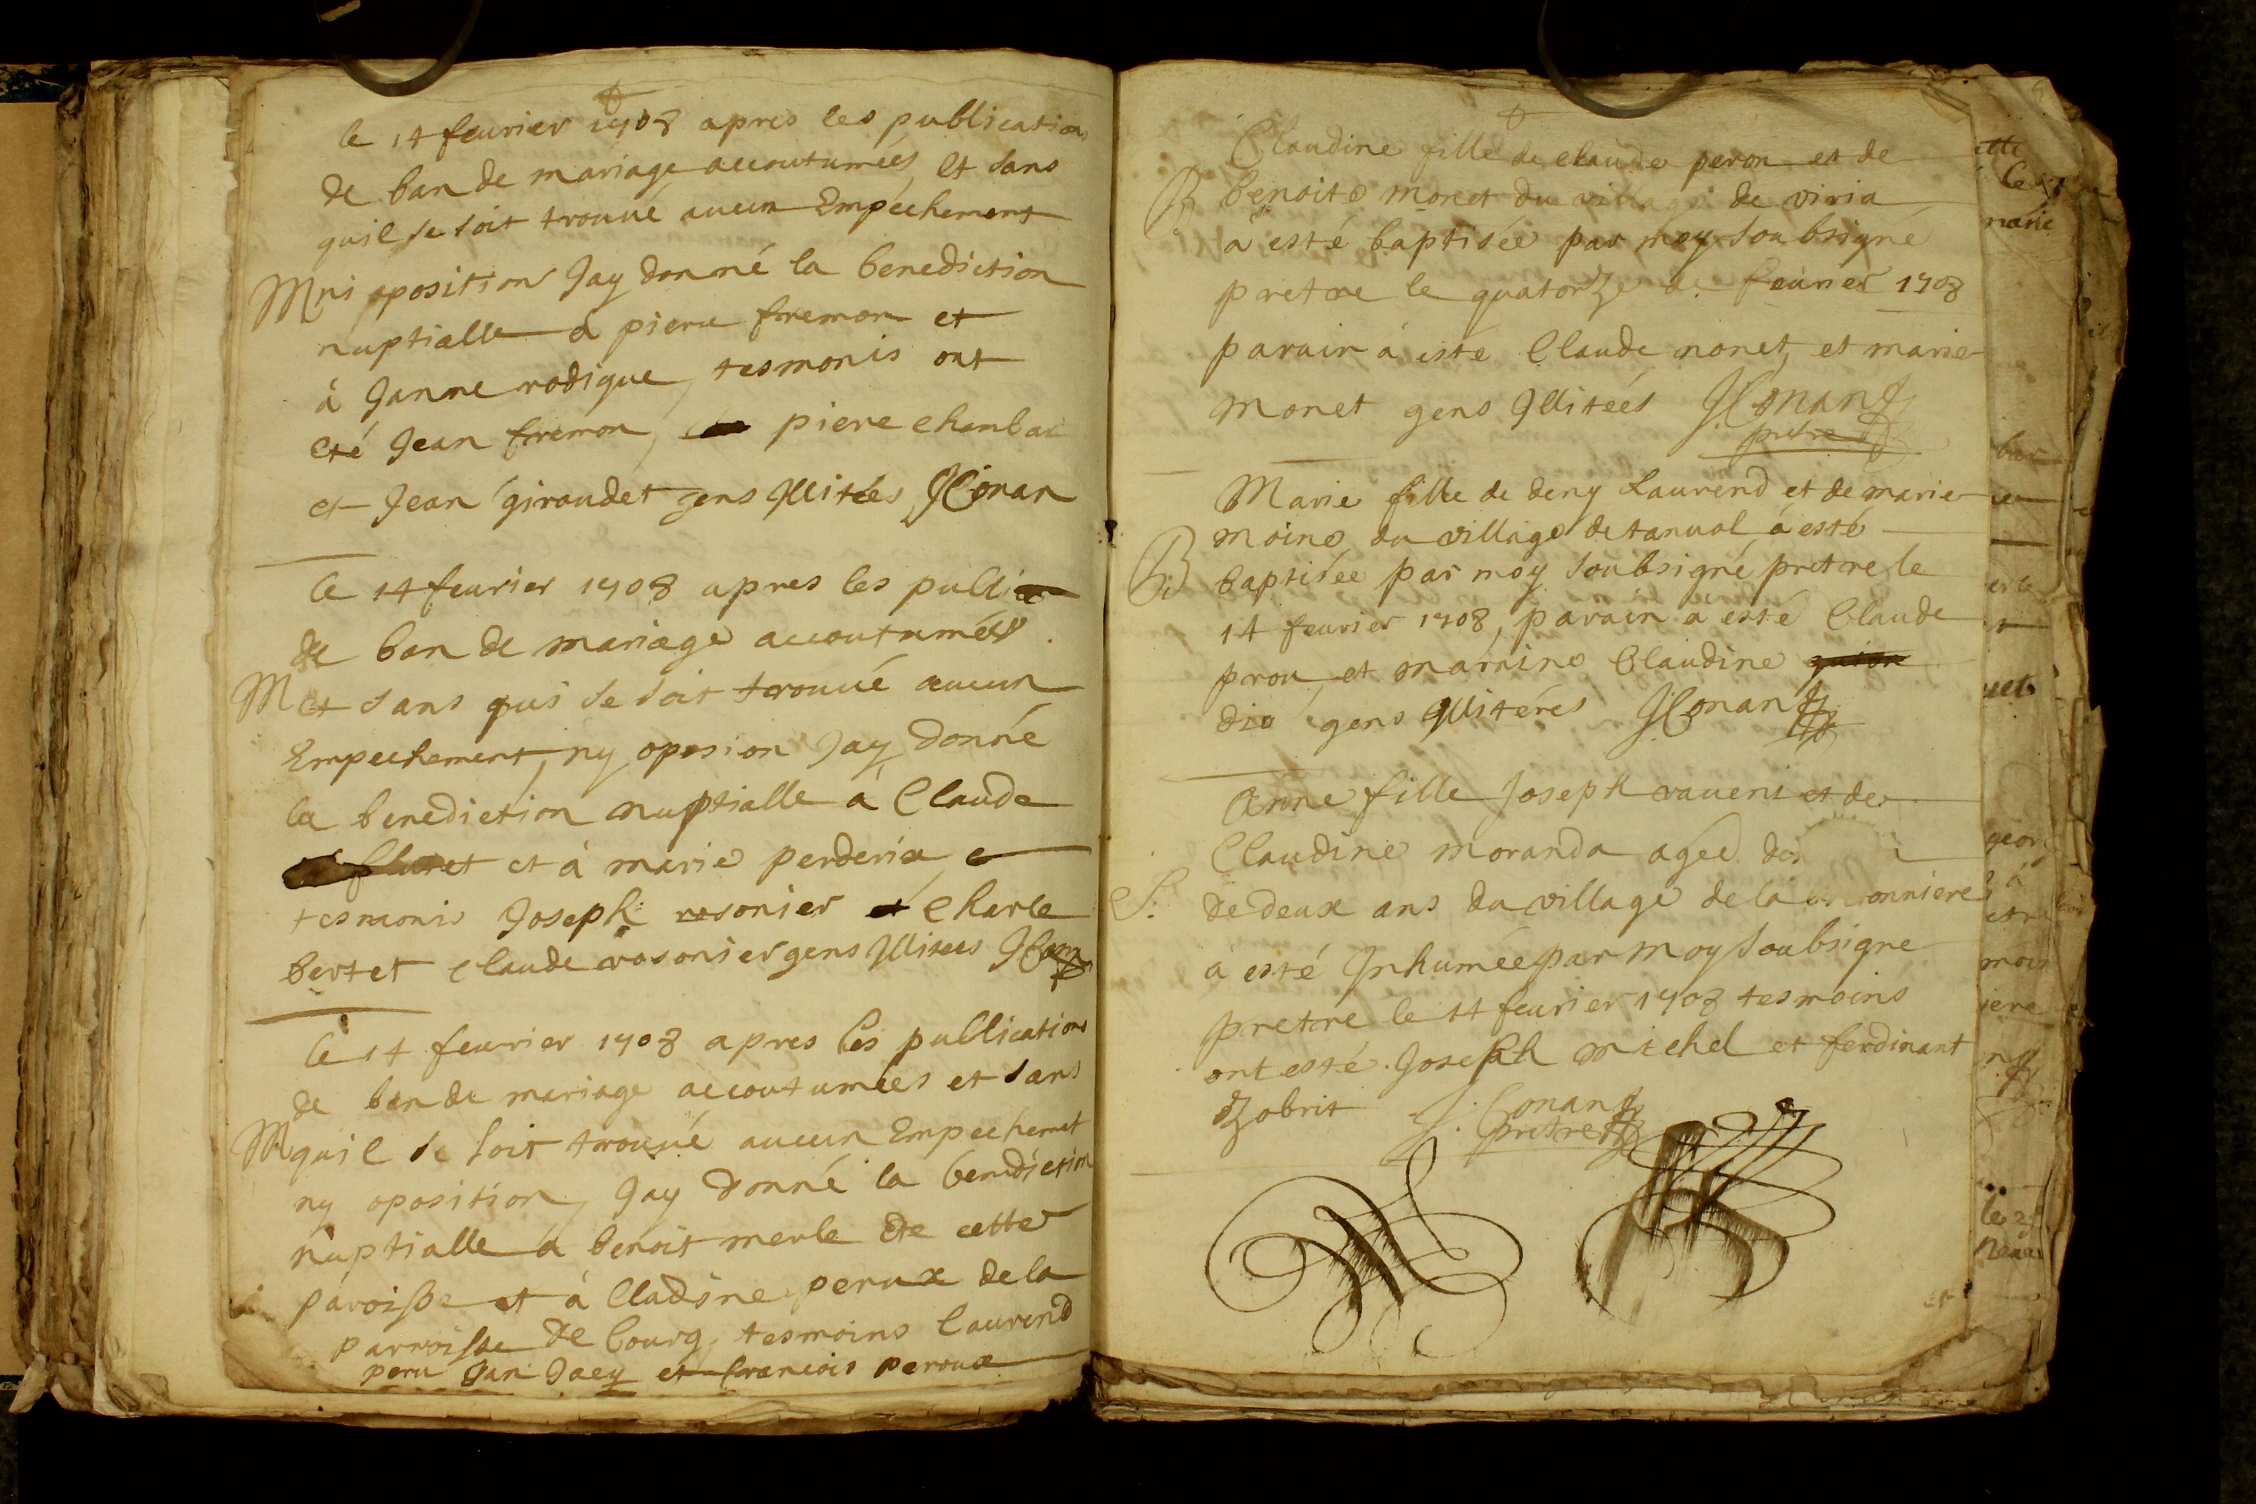 le 14 feurier 1708 apres les publications
de ban de mariage accoutumées, et sans
quil se soit trouué aucun Empechement
M ni oposition Jay donné la benediction
nuptialle a piere fremon et
à Janne rodique, tesmonis ont
eté Jean fremon, piere chanbar
et Jean giraudet gens Jllitées JConan
le 14 feurier 1708 apres les publi
de ban de mariage accoutumées
M et sans qui se soit trouué aucun
Empechement, ny oposion Jay donné
la benediction nuptialle a Claude
et à marie perderix e
tesmonis Joseph rosonier et Charle
bertet Claude rosonier gens Jllitees
le 14 feurier 1708 apres les publications
de ban de mariage accoutumées et sans
M quil se soit trouué aucun Empechemet
ny oposition, Jay donné la benediction
nuptialle a benoit merle de cette
paroisse et à Cladine perux de la
parroisse de bourg, tesmoins laurend
peru Jan Jaey et francois peroux
Claudine fille de claude peron et de
B benoite monet du village de viria
à esté baptisée par moy soubsigné
pretre le quatorze de feurier 1708
parain à esté Claude monet, et marie
monet gens Jllitées JConan
pretre
Marie fille de deny Laurend et de marie
moine du village de tanuol à esté
B baptisée par moy soubsigné pretre le
14 feurier 1708, parain a esté Claude
prou, et marrine Claudine
dio gens Jllitérés JConan
Anne fille Joseph raueni et de
Claudine moranda agée
S. de deux ans du village de la
à esté Jnhumée par moy soubsigne
pretre le 14 feurier 1708 tesmoins
ont esté Joseph michel et ferdinant
zobrit J. Conan
pretre